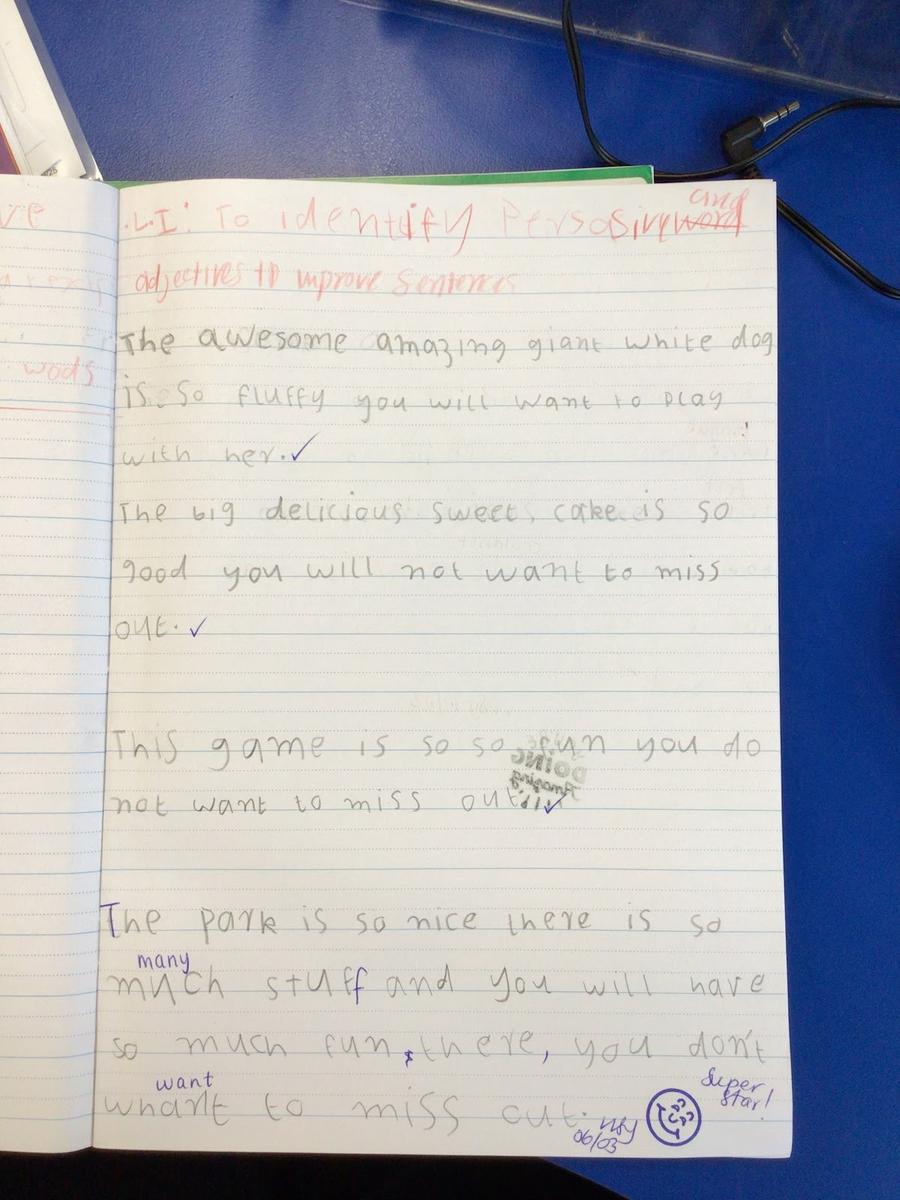 ve
wods
.L.I: To identify Persosive word and
adjectives to improve sentences
The awesome amazing giant white dog
is so fluffy you will want to play
with her.
The big delicious sweet cake is so
good you will not want to miss
out.
This game is so so fun you do
not want to miss out.
DOING
Amazing
The park is so nice there is so
many
much stuff and you will have
so much fun there, you don't
want
whant to miss out.
06/03
Super
Star!